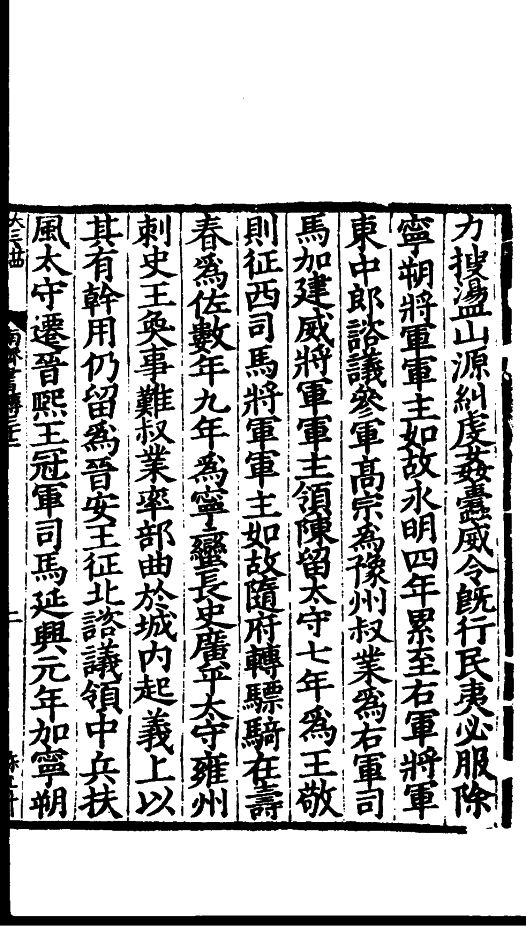 力搜盪山源糾虔姦蠹威令旣行民夷必服除
寧朔將軍軍主如故永明四年累至右軍將軍
東中郎諮議參軍髙宗爲豫州叔業爲右軍司
馬加建威將軍軍主領陳留太守七年爲王敬
則征西司馬將軍軍主如故隨府轉驃騎在壽
春爲佐數年九年爲寧蠻長史廣平太守雍州
刺史王奐事難叔業率部曲於城內起義上以
其有幹用仍留爲晉安王征北諮議領中兵扶
風太守遷晉熙王冠軍司馬延興元年加寧朔